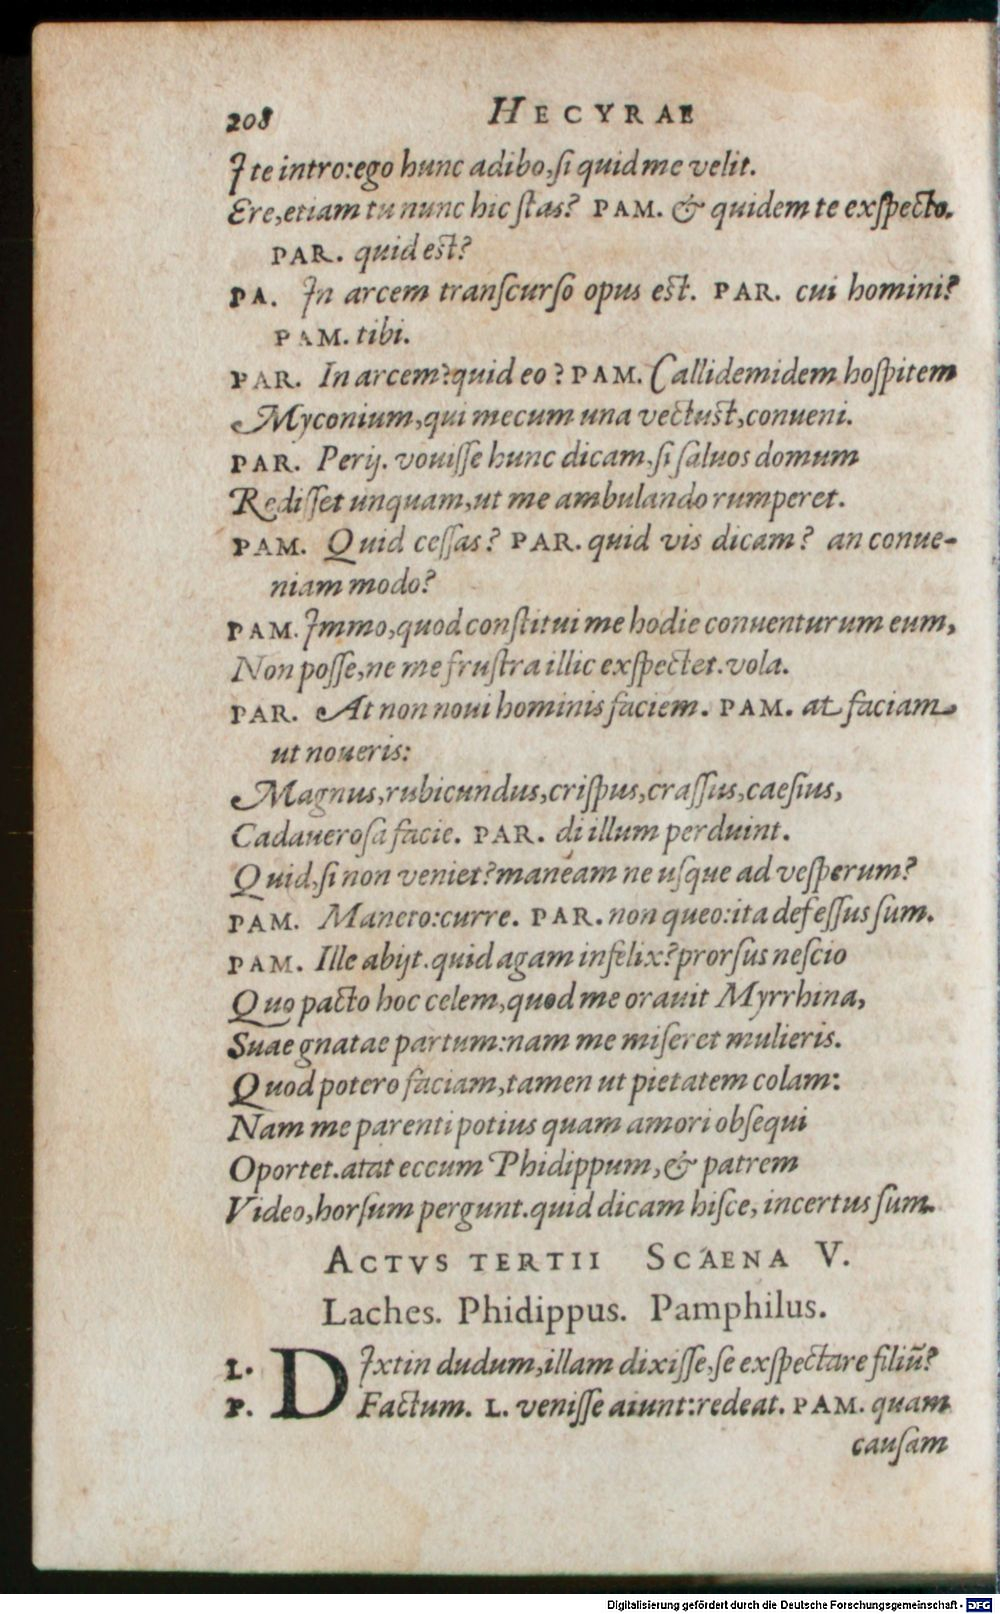 208 HECYRAE
Ite intro: ego hunc adibo, si quid me velit.
Ere, etiam tu nunc hic stas? PAM. & quidem te exspecto.
PAR. quid est?
PA. In arcem transcurso opus est. PAR. cui homini?
PAM. tibi.
PAR. In arcem? quid eo? PAM. Callidemidem hospitem
Myconium, qui mecum una vectust, conueni.
PAR. Perij. vouisse hunc dicam, si saluos domum
Redisset unquam, ut me ambulando rumperet.
PAM. Quid cessas? PAR. quid vis dicam? an conue-
niam modo?
PAM. Immo, quod constitui me hodie conuenturum eum,
Non posse, ne me frustra illic exspectet. vola.
PAR. At non noui hominis faciem. PAM. at faciam
ut noueris:
Magnus, rubicundus, crispus, crassus, caesius,
Cadauerosa facie. PAR. di illum perduint.
Quid, si non veniet? maneam ne usque ad vesperum?
PAM. Maneto: curre. PAR. non queo: ita defessus sum.
PAM. Ille abijt. quid agam infelix? prorsus nescio
Quo pacto hoc celem, quod me orauit Myrrhina,
Suae gnatae partum: nam me miseret mulieris.
Quod potero faciam, tamen ut pietatem colam:
Nam me parenti potius quam amori obsequi
Oportet. atat eccum Phidippum, & patrem
Video, horsum pergunt. quid dicam hisce, incertus sum.
ACTVS TERTII SCAENA V.
Laches. Phidippus. Pamphilus.
L. DIxtin dudum, illam dixisse, se exspectare filiū?
P. Factum. L. venisse aiunt: redeat. PAM. quam
causam
Digitalisierung gefördert durch die Deutsche Forschungsgemeinschaft - DFG